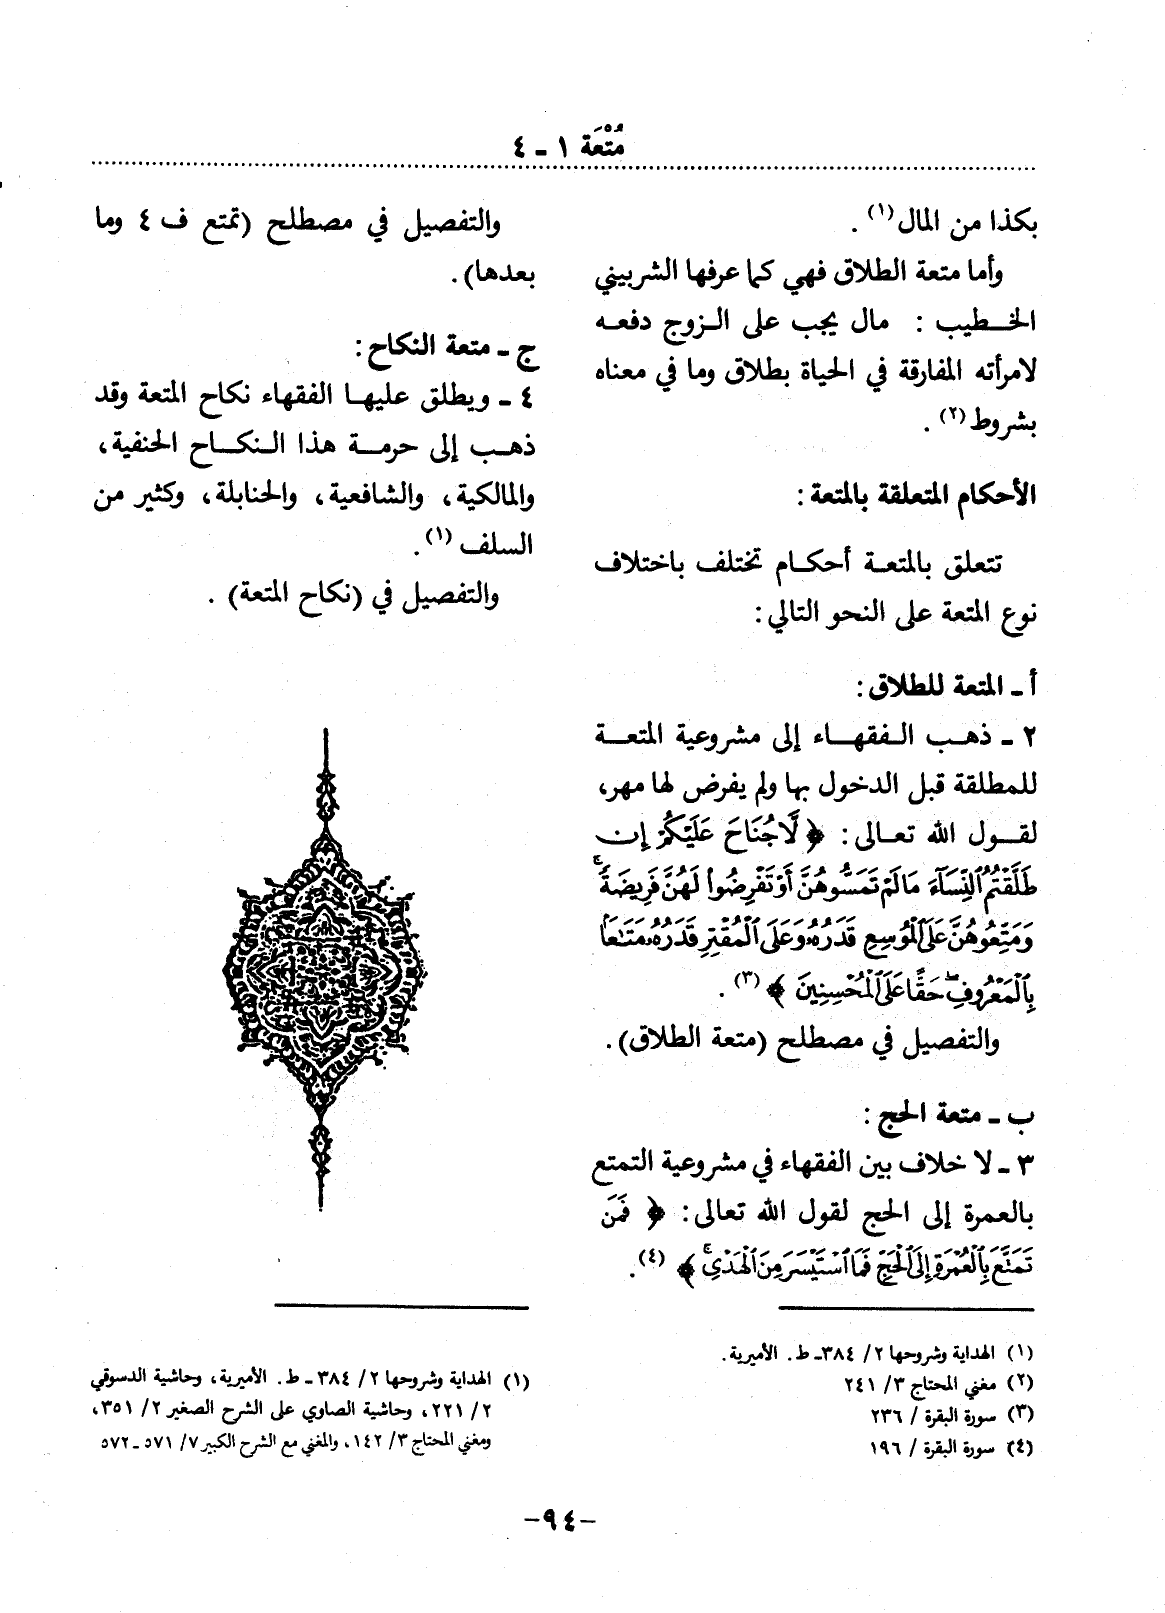 مُتْعَة ١ - ٤
بكذا من المال(١).
وأما متعة الطلاق فهي كما عرفها الشربيني
الخطيب : مال يجب على الزوج دفعه
لامرأته المفارقة في الحياة بطلاق وما في معناه
بشروط(٢).
الأحكام المتعلقة بالمتعة:
تتعلق بالمتعة أحكام تختلف باختلاف
نوع المتعة على النحو التالي:
أ - المتعة للطلاق:
٢ - ذهب الفقهاء إلى مشروعية المتعة
للمطلقة قبل الدخول بها ولم يفرض لها مهر،
لقول الله تعالى: ﴿ لَّا جُنَاحَ عَلَيْكُمْ إِن
طَلَّقْتُمُ ٱلنِّسَآءَ مَا لَمْ تَمَسُّوهُنَّ أَوْ تَفْرِضُوا۟ لَهُنَّ فَرِيضَةً ۚ
وَمَتِّعُوهُنَّ عَلَى ٱلْمُوسِعِ قَدَرُهُۥ وَعَلَى ٱلْمُقْتِرِ قَدَرُهُۥ مَتَـٰعًۢا
بِٱلْمَعْرُوفِ ۖ حَقًّا عَلَى ٱلْمُحْسِنِينَ ﴾(٣).
والتفصيل في مصطلح (متعة الطلاق).
ب - متعة الحج:
٣ - لا خلاف بين الفقهاء في مشروعية التمتع
بالعمرة إلى الحج لقول الله تعالى: ﴿ فَمَن
تَمَتَّعَ بِٱلْعُمْرَةِ إِلَى ٱلْحَجِّ فَمَا ٱسْتَيْسَرَ مِنَ ٱلْهَدْىِ ۚ ﴾(٤).
(١) الهداية وشروحها ٢/ ٣٨٤ - ط. الأميرية.
(٢) مغني المحتاج ٣/ ٢٤١
(٣) سورة البقرة / ٢٣٦
(٤) سورة البقرة / ١٩٦
والتفصيل في مصطلح (تمتع ف ٤ وما
بعدها).
ج - متعة النكاح:
٤ - ويطلق عليها الفقهاء نكاح المتعة وقد
ذهب إلى حرمة هذا النكاح الحنفية،
والمالكية، والشافعية، والحنابلة، وكثير من
السلف(١).
والتفصيل في (نكاح المتعة).
(١) الهداية وشروحها ٢/ ٣٨٤ - ط. الأميرية، وحاشية الدسوقي
٢/ ٢٢١، وحاشية الصاوي على الشرح الصغير ٢/ ٣٥١،
ومغني المحتاج ٣/ ١٤٢، والمغني مع الشرح الكبير ٧/ ٥٧١ - ٥٧٢
-٩٤-